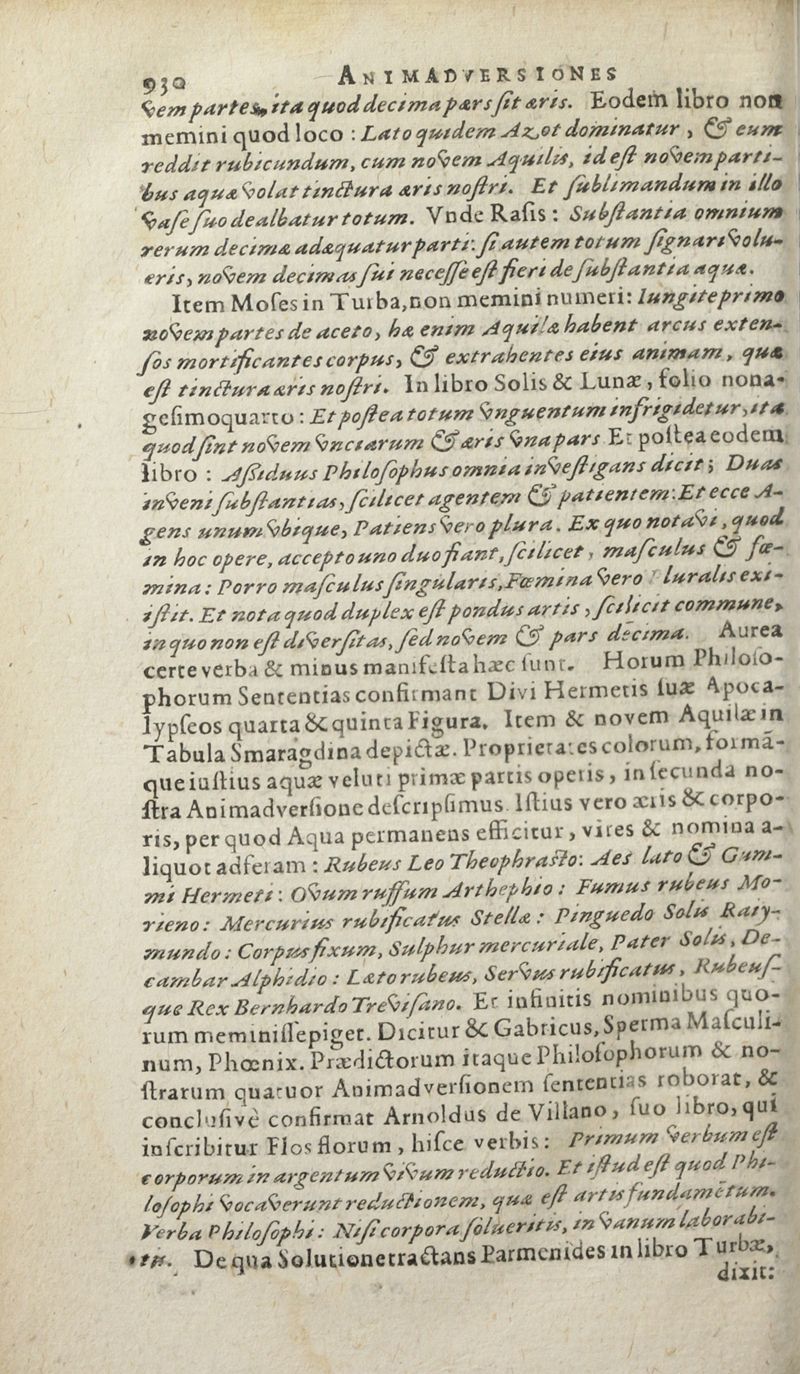 930 ANIMADVERSIONES
vem partes, ita quod decima pars sit æris. Eodem libro non
memini quod loco : Lato quidem Azot dominatur , & eum
reddit rubicundum, cum novem Aquilis, id est novem parti-
bus aquæ volat tinctura æris nostri. Et sublimandum in illo
vase suo dealbatur totum. Vnde Rasis : Substantia omnium
rerum decimæ adæquatur parti: si autem totum signari volu-
eris, novem decimas sui necesse est fieri de substantia aquæ.
Item Moses in Turba,non memini numeri: Iungite primo
novem partes de aceto, hæ enim Aquilæ habent arcus exten-
sos mortificantes corpus, & extrahentes eius animam, quæ
est tinctura æris nostri. In libro Solis & Lunæ, folio nona-
gesimoquarto : Et postea totum vnguentum infrigidetur, ita
quod sint novem vnciarum & æris vna pars Et postea eodem
libro : Aßiduus Philosophus omnia investigans dicit; Duas
inveni substantias, scilicet agentem & patientem: Et ecce A-
gens unum vbique, Patiens vero plura. Ex quo notavi, quod
in hoc opere, accepto uno duo fiant, scilicet, masculus & fœ-
mina : Porro masculus singularis, Fœmina vero luralis exi-
istit. Et nota quod duplex est pondus artis, scilicit commune,
in quo non est diversitas, sed novem & pars decima. Aurea
certe verba & minus manifesta hæc sunt. Horum Philoso-
phorum Sententias confirmant Divi Hermetis suæ Apoca-
lypseos quarta & quinta Figura. Item & novem Aquilæ in
Tabula Smaragdina depictæ. Proprietates colorum, forma-
que iustius aquæ veluti primæ partis operis, in secunda no-
stra Animadversione descripsimus. Istius vero æris & corpo-
ris, per quod Aqua permanens efficitur, vires & nomina a-
liquot adferam : Rubeus Leo Theophrasto: Aes lato & Gum-
mi Hermeti : Ovum ruffum Arthephio : Fumus rubeus Mo-
rieno : Mercurius rubificatus Stellæ : Pinguedo Solis Ray-
mundo : Corpus fixum, Sulphur mercuriale, Pater Solis, De-
cambar Alphidio : Læto rubeus, Servus rubificatus, Rubeus-
que Rex Bernhardo Trevisano. Et infinitis nominibus quo-
rum meminisse piget. Dicitur & Gabricus, Sperma Masculi-
num, Phœnix. Prædictorum itaque Philosophorum & no-
strarum quatuor Animadversionem sententias roborat, &
conclusivè confirmat Arnoldus de Villano, suo libro, qui
inscribitur Flos florum , hisce verbis : Primum verbum est
corporum in argentum vivum reductio. Et istud est quod Phi-
losophi vocaverunt reductionem, quæ est artis fundamētum.
Verba Philosophi : Nisi corpora solueritis, in vanum laborabi-
tis. De qua Solutione tractans Parmenides in libro Turbæ,
dixit: